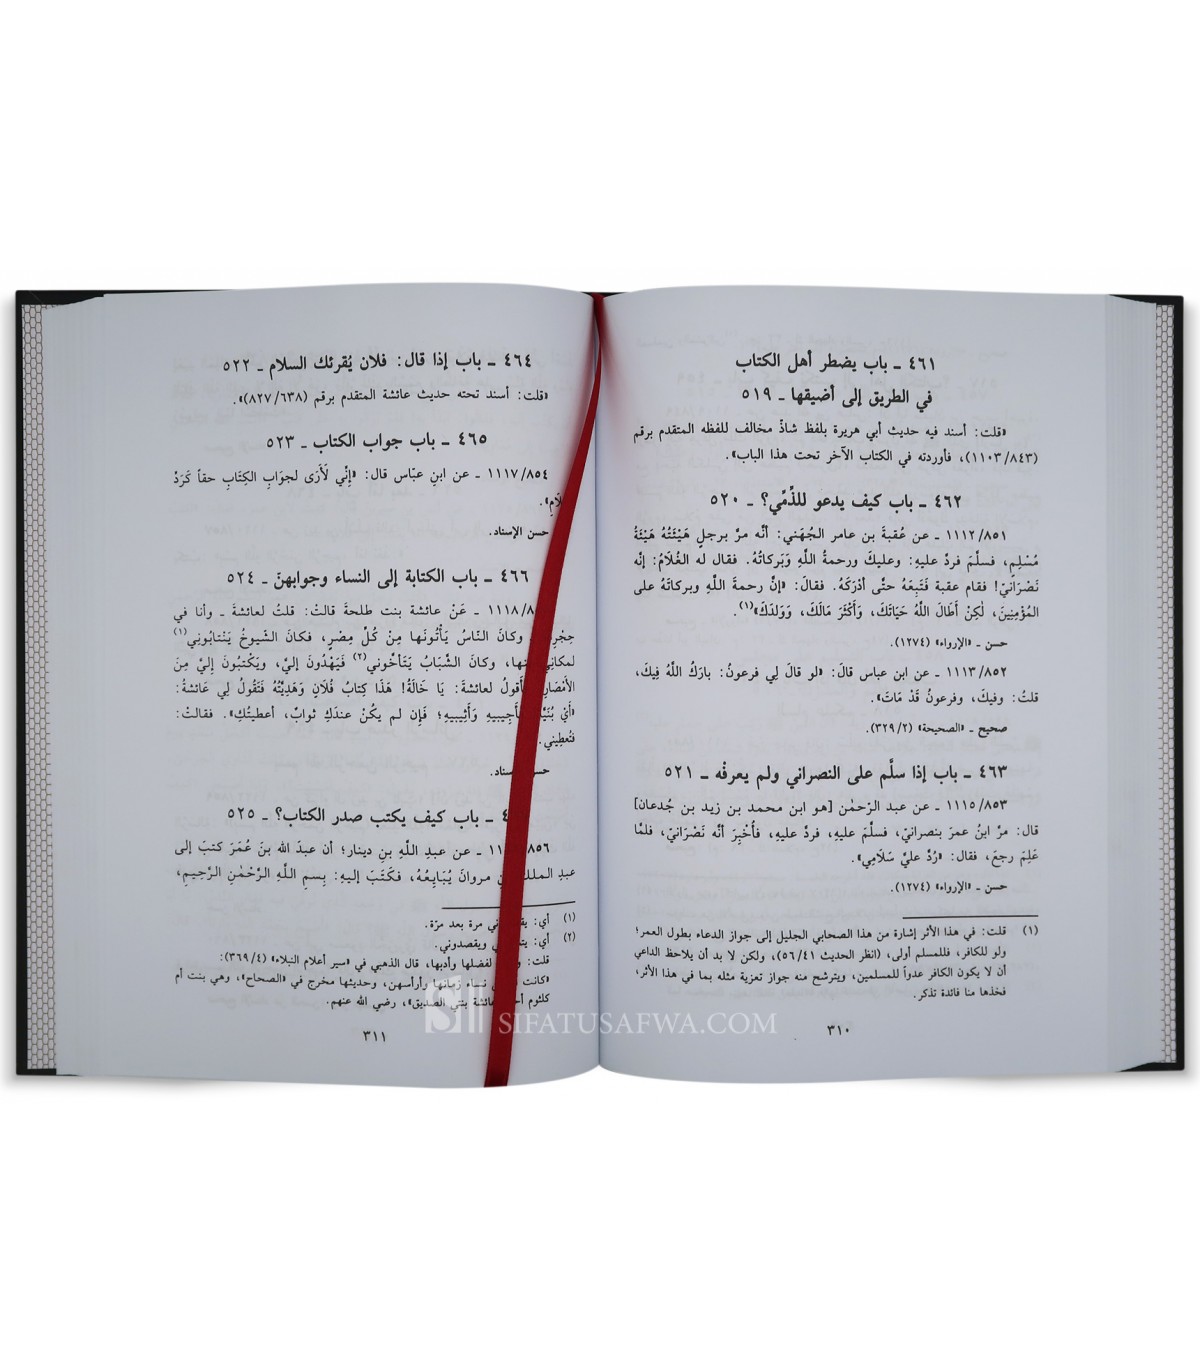 ٤٦١ ـ باب يضطر أهل الكتاب
في الطريق إلى أضيقها ـ ٥١٩
«قلت: أسند فيه حديث أبي هريرة بلفظ شاذّ مخالف للفظه المتقدم برقم
(١١٠٣/٨٤٣)، فأوردته في الكتاب الآخر تحت هذا الباب».
٤٦٢ ـ باب كيف يدعو للذِّمِّي؟ ـ ٥٢٠
١١١٢/٨٥١ ـ عن عُقبةَ بن عامر الجُهَني: أنَّه مرَّ برجلٍ هَيْئَتُهُ هَيْئَةُ
مُسْلِمٍ، فسلَّمَ فردَّ عليهِ: وعليكَ ورحمةُ اللَّهِ وَبَركاتُهُ. فقال له الغُلامُ: إنَّه
نَصْرَانيّ! فقام عقبة فَتَبِعَهُ حتَّى أدْرَكَهُ. فقالَ: «إنَّ رحمةَ اللَّهِ وبركاتَهُ على
المُؤْمِنِينَ، لٰكِنْ أَطَالَ اللَّهُ حَيَاتَكَ، وَأَكْثَرَ مَالَكَ، وَوَلَدَكَ»(١).
حسن ـ «الإرواء» (١٢٧٤).
١١١٣/٨٥٢ ـ عن ابن عباس قالَ: «لو قالَ لِي فرعونُ: بارَكَ اللَّهُ فِيكَ،
قلتُ: وفيكَ، وفرعونُ قَدْ مَاتَ».
صحيح ـ «الصحيحة» (٣٢٩/٢).
٤٦٣ ـ باب إذا سلَّم على النصراني ولم يعرفْه ـ ٥٢١
١١١٥/٨٥٣ ـ عن عبد الرَّحمٰن [هو ابن محمد بن زيد بن جُدعان]
قال: مرَّ ابنُ عمرَ بنصرانيّ، فسلَّمَ عليهِ، فردَّ عليهِ، فأُخْبِرَ أنَّه نَصْرَانيّ، فلمَّا
عَلِمَ رجعَ، فقال: «رُدَّ عليَّ سَلَامِي».
حسن ـ «الإرواء» (١٢٧٤).
(١) قلت: في هذا الأثر إشارة من هذا الصحابي الجليل إلى جواز الدعاء بطول العمر؛
ولو للكافر، فللمسلم أولى، (انظر الحديث ٥٦/٤١)، ولكن لا بد أن يلاحظ الداعي
أن لا يكون الكافر عدواً للمسلمين، ويترشح منه جواز تعزية مثله بما في هذا الأثر،
فخذها منا فائدة تذكر.
٣١٠
٤٦٤ ـ باب إذا قال: فلان يُقرئك السلام ـ ٥٢٢
«قلت: أسند تحته حديث عائشة المتقدم برقم (٨٢٧/٦٣٨)».
٤٦٥ ـ باب جواب الكتاب ـ ٥٢٣
١١١٧/٨٥٤ ـ عن ابنِ عبّاس قال: «إنِّي لَأَرَى لجوَابِ الكِتَابِ حقاً كَرَدِّ
حسن الإسناد.
٤٦٦ ـ باب الكتابة إلى النساء وجوابهنّ ـ ٥٢٤
١١١٨/ ـ عَنْ عائشة بنت طلحةَ قالتْ: قلتُ لعائشةَ ـ وأنا في
وكانَ النَّاسُ يَأْتُونَها مِنْ كُلِّ مِصْرٍ، فكانَ الشّيوخُ يَنْتابُوني(١)
وكانَ الشَّبَابُ يَتَأخُّوني(٢) فَيَهْدُونَ إليَّ، ويَكْتبُونَ إليَّ مِنَ
لعائشةَ: يَا خَالَةُ! هَذَا كِتَابُ فُلَانٍ وَهَدِيَّتُهُ فَتَقُولُ لِي عَائشةُ:
«أَيْ وَأَثِيبيهِ؛ فَإن لم يكُنْ عندَكِ ثوابٌ، أعطيتُكِ». فقالتْ:
فتُعطِيني.
ـ باب كيف يكتب صدر الكتاب؟ ـ ٥٢٥
٨٥٦/ ـ عن عبدِ اللَّهِ بنِ دينار؛ أن عبدَ الله بنَ عُمَرَ كتبَ إلى
عبدِ الملك مروانَ يُبَايِعُهُ، فكَتَبَ إليهِ: بِسمِ اللَّهِ الرَّحْمٰنِ الرَّحِيمِ،
(١) أي: مرة بعد مرّة.
(٢) أي: ويقصدوني.
قلت: لفضلها وأدبها، قال الذهبي في «سير أعلام النبلاء» (٣٦٩/٤):
«كانت نساء زمانها وأرأسهن، وحديثها مخرج في «الصحاح»، وهي بنت أم
كلثوم عائشة بنتي الصديق»، رضي الله عنهم.
٣١١
SIFATUSAFWA.COM